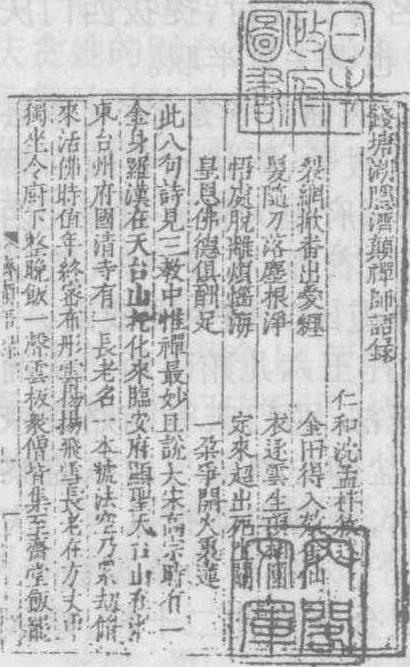 日本
政府
圖書
錢塘湖隱濟顛禪師語錄
仁和沈孟柈
裂網掀番出愛纏　金田得入
髮隨刀落塵根淨　衣逐雲生
悟處脫離煩惱海　定來超出死
皇恩佛德俱酬足　一朶爭開火裏蓮
此八句詩見三教中惟禪最妙且說大宋高宗時有一
金身羅漢在天台山托化來臨安府顯聖天台山在浙
東台州府國清寺有一長老名一本號法空乃累劫修
來活佛時值年終密布彤雲揚揚飛雪長老在方丈中
獨坐令廚下整晚飯一聲雲板衆僧皆集至齋堂飯罷
濟顛語錄
內閣
文庫